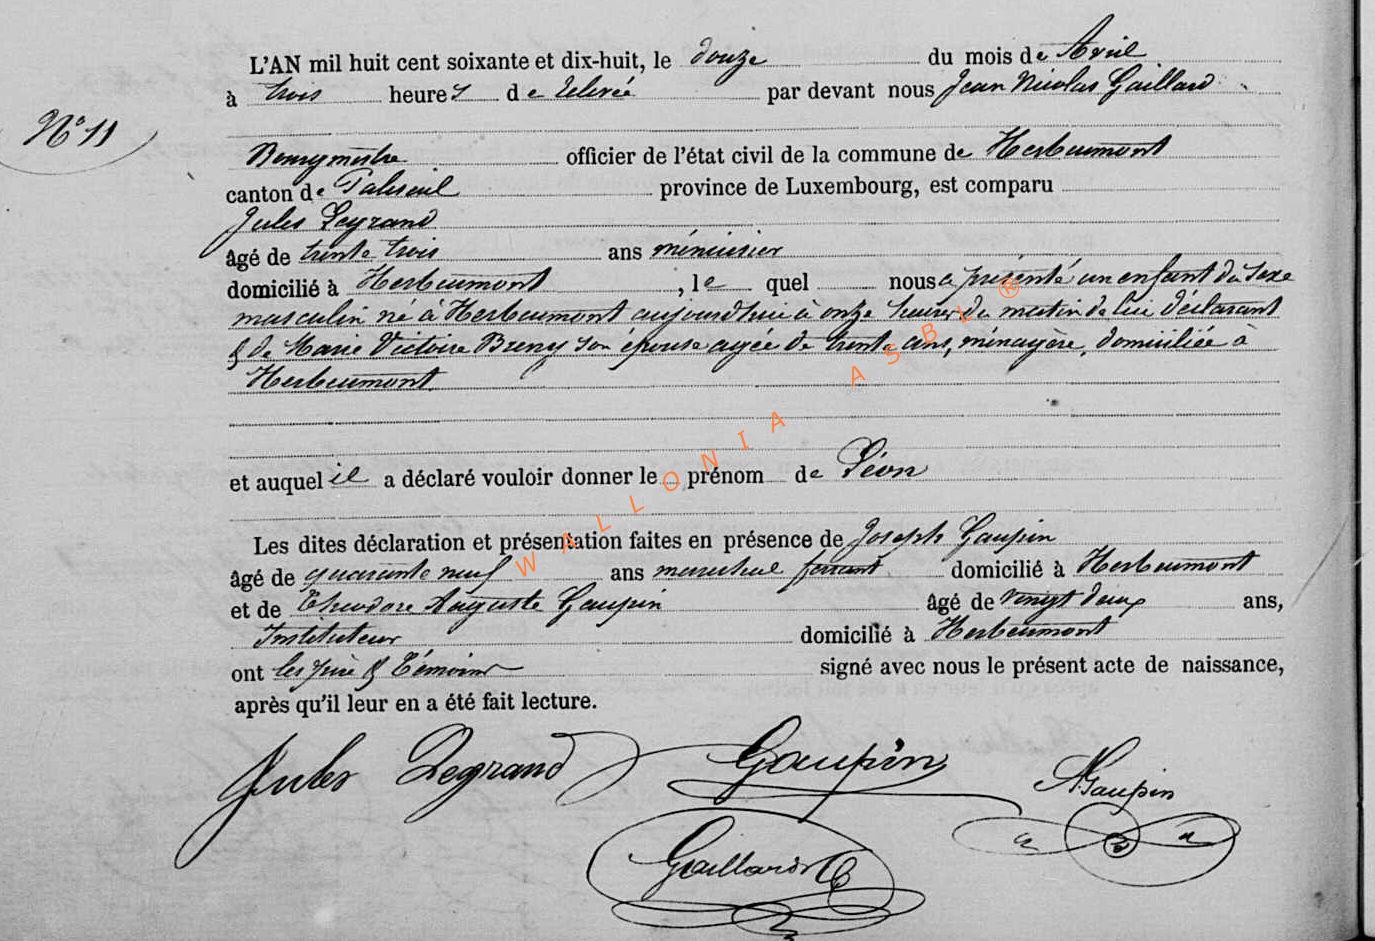 L'AN mil huit cent soixante et dix-huit, le douze du mois de Avril
à trois heures de relevée par devant nous Jean Nicolas Gaillard
N° 11
Bourgmestre officier de l'état civil de la commune de Herbeumont
canton de Paliseul province de Luxembourg, est comparu
Jules Legrand
âgé de trente trois ans ménuisier
domicilié à Herbeumont, le quel nous a présenté un enfant du sexe
masculin né à Herbeumont aujourd'hui à onze heures du matin de lui déclarant
& de Marie Victoire Breny son épouse agée de trente ans, ménagère, domiciliée à
Herbeumont
et auquel il a déclaré vouloir donner le prénom de Léon
Les dites déclaration et présentation faites en présence de Joseph Gaupin
âgé de quarante neuf ans marechal ferrant domicilié à Herbeumont
et de Théodore Auguste Gaupin âgé de vingt deux ans,
Instituteur domicilié à Herbeumont
ont les père & témoins signé avec nous le présent acte de naissance,
après qu'il leur en a été fait lecture.
Jules Legrand Gaupin A Gaupin
Gaillard
WALLONIA ASBL ®